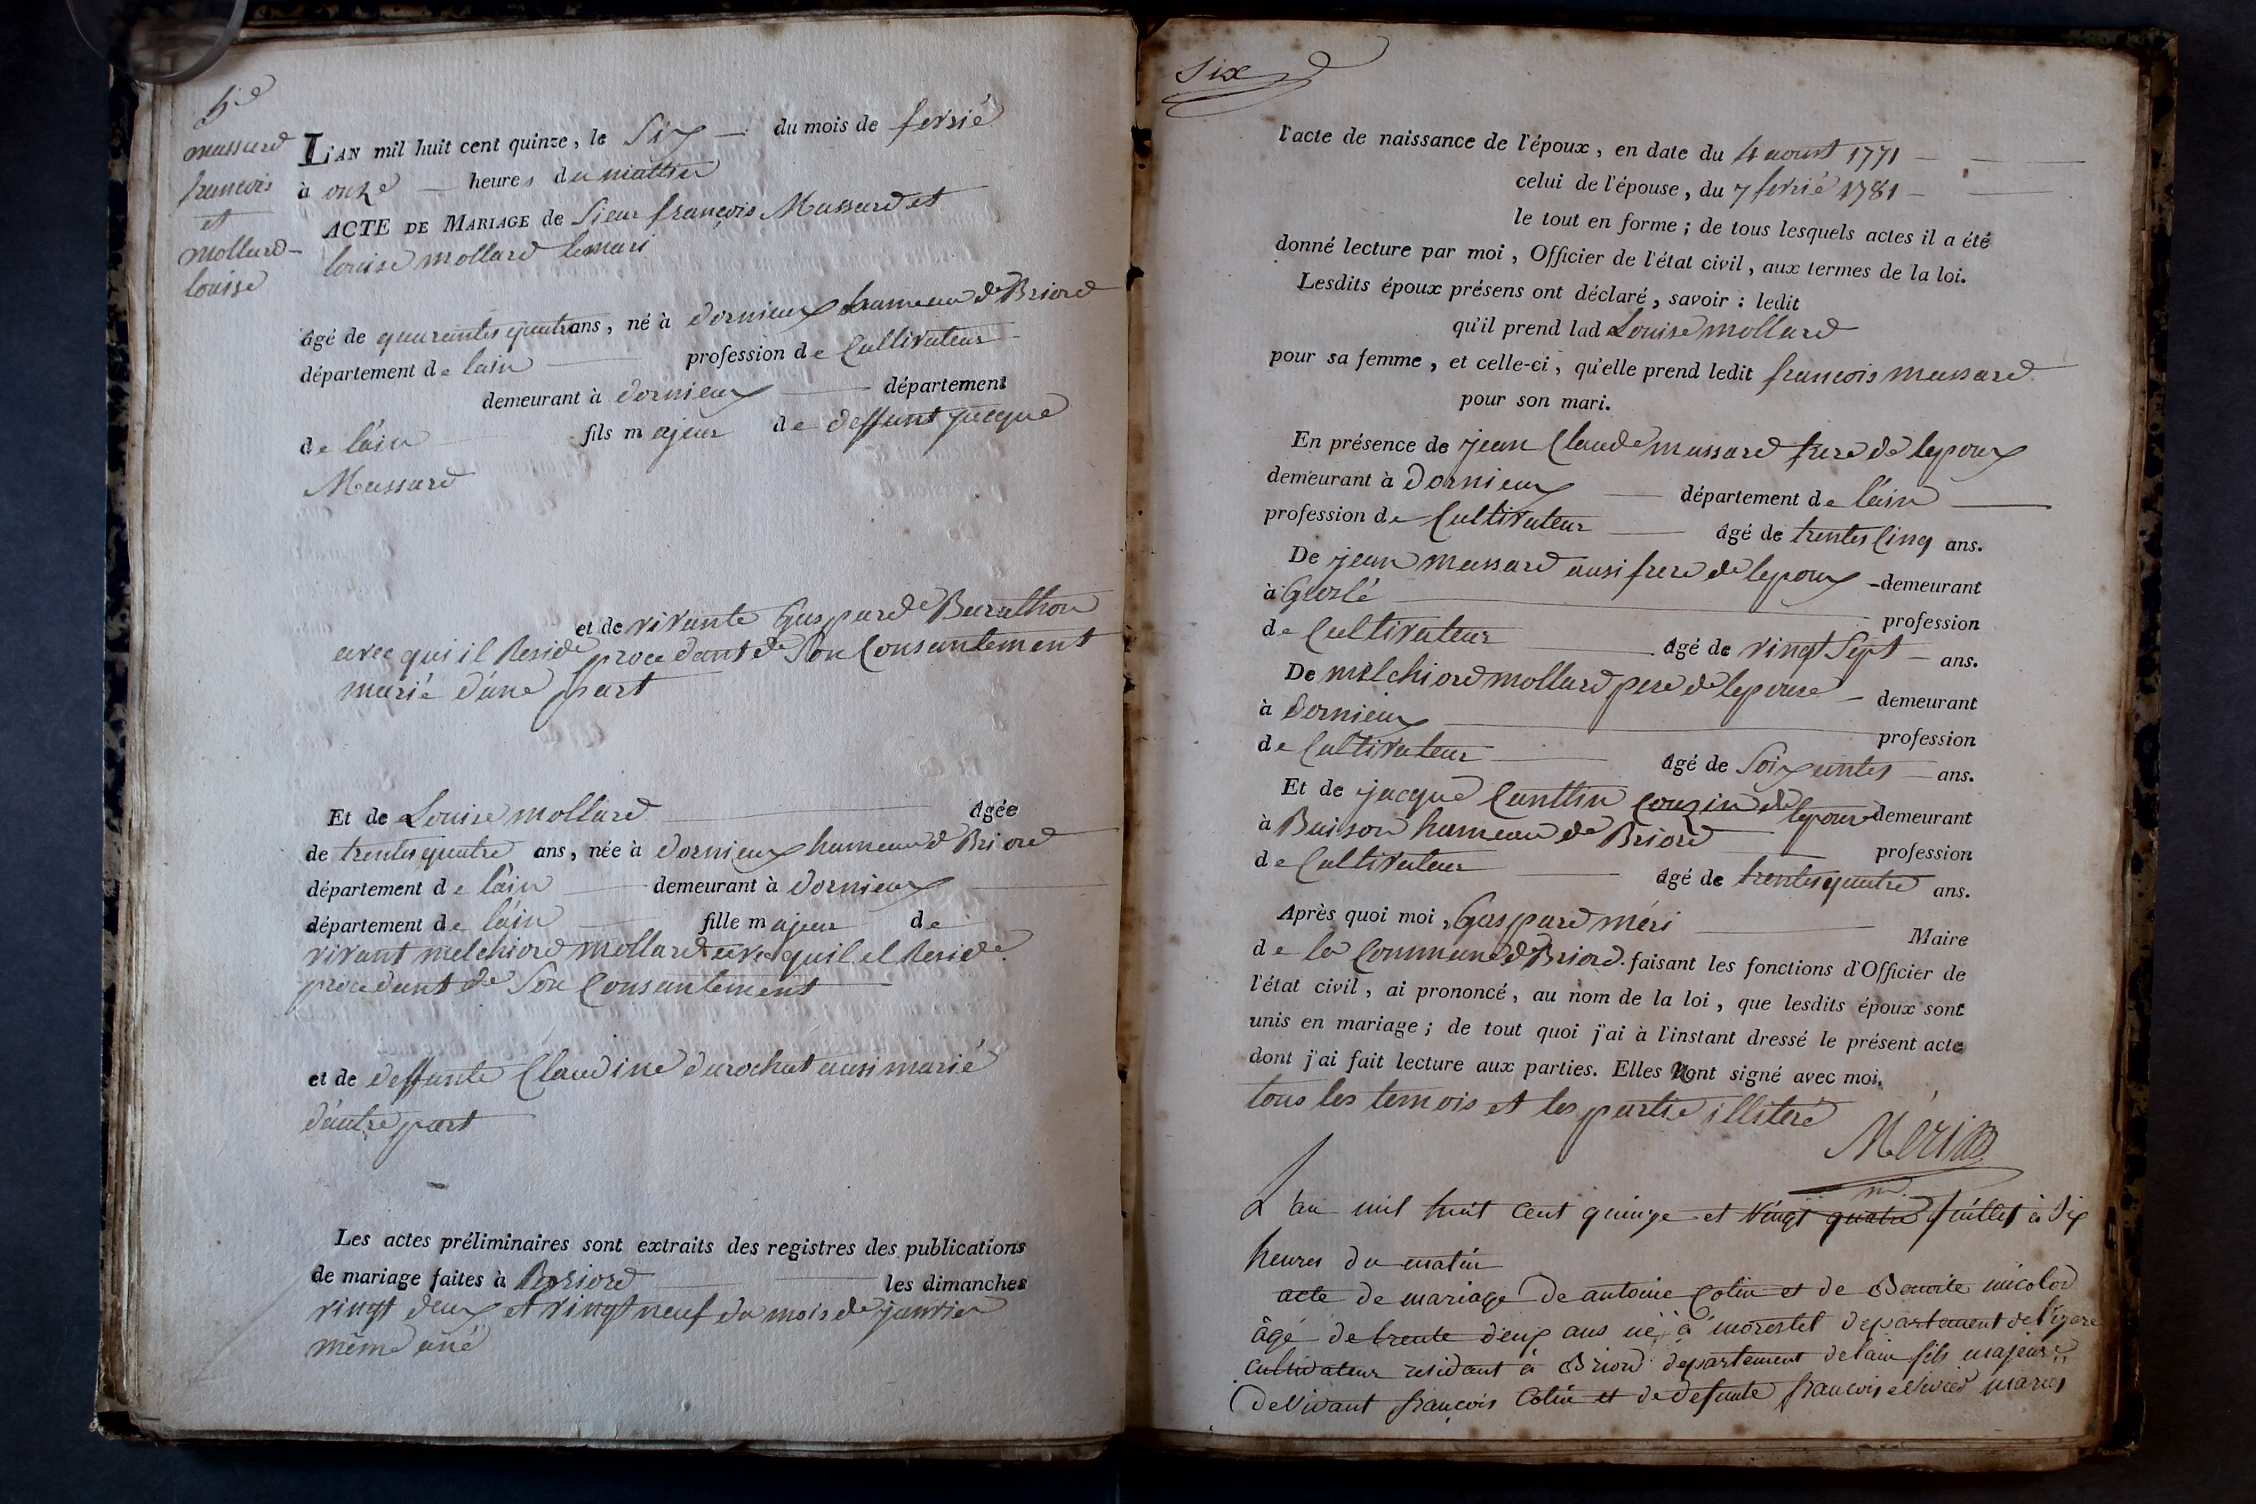 5e
massard
francois
et
mollard
louise
L'AN mil huit cent quinze, le Six du mois de fevrié
à onze heures du mattin
ACTE DE MARIAGE de Sieur françois Massard et
louise mollard lemari
âgé de quarantes quatre ans, né à dornieux hameau de Briord
département de lain profession de Cultivateur
demeurant à dornieux département
de láin fils majeur de deffunt jacque
Massard
et de vivante Gasparde Barathon
avec qui il Reside procedant de Son Consantement
marié d'úne part
Et de Louise mollard âgée
de trentes quatre ans, née à dornieux hameau d Briord
département de láin demeurant à dornieux
département de láin fille majeur de
vivant melchiord mollard avec quil el Reside
procedant de Son Consantement
et de deffunte Claudine durochat ausi marié
d'áutre part
Les actes préliminaires sont extraits des registres des publications
de mariage faites à Briord les dimanches
vingt deux et vingt neuf du mois de janvier
même áné
Six
l'acte de naissance de l'époux, en date du 4 aoust 1771
celui de l'épouse, du 7 fevrié 1781
le tout en forme; de tous lesquels actes il a été
donné lecture par moi, Officier de l'état civil, aux termes de la loi.
Lesdits époux présens ont déclaré, savoir: ledit
qu'il prend lad Louise mollard
pour sa femme, et celle-ci, qu'elle prend ledit francois massard
pour son mari.
En présence de jean Claude massard frere de lepoux
demeurant à Dornieux département de láin
profession de Cultivateur âgé de trentes Cinq ans.
De jean massard ausi frere de lepoux demeurant
à Groslé profession
de Cultivateur âgé de vingt Sept ans.
De melchiord mollard pere de lepouse demeurant
à dornieux profession
de Cultivateur âgé de Soixantes ans.
Et de jacque Canttin Couzin de lepouse demeurant
à Buison hameau de Briord profession
de Cultivateur âgé de trentes quatre ans.
Après quoi moi, Gaspard méri Maire
de la Commune d Briord faisant les fonctions d'Officier de
l'état civil, ai prononcé, au nom de la loi, que lesdits époux sont
unis en mariage; de tout quoi j'ai à l'instant dressé le présent acte
dont j'ai fait lecture aux parties. Elles Nont signé avec moi.
tous les temois et les partie illiteré
Méri m
m
L'an mil huit Cent quinze et vingt quatre juillet à Six
heures du matin
acte de mariage De antoine Colin et de Benoite micolod
âgé de trente deux ans né à morestel departement de l'isere
Cultivateur residant à Briord departement de lain fils majeure
De vivant françois Colin et de defunte francoise mariés